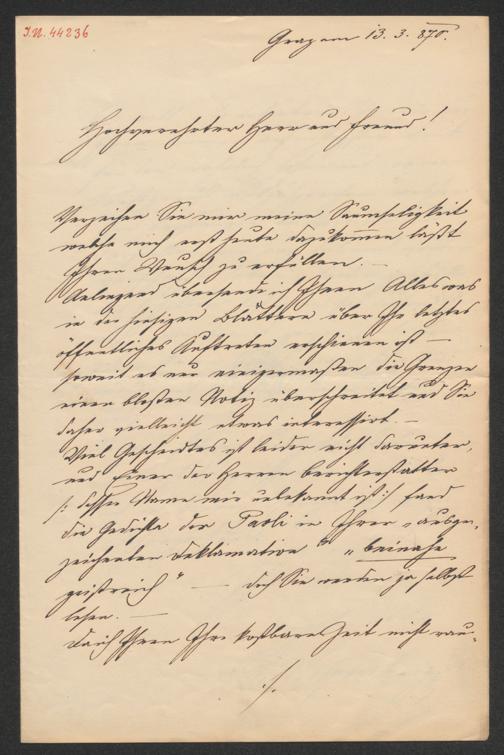 J.N. 44236
Graz am 13. 3. 870.
Hochverehrter Herr und Freund!
Verzeihen Sie mir meine Saumseligkeit
welche mich erst heute dazukommen läßt
Ihren Wunsch zu erfüllen. —
Anliegend übersende ich Ihnen Alles was
in den hiesigen Blättern über Ihr letztes
öffentliches Auftreten erschienen ist —
soweit es nur einigermaßen die Grenzen
einer bloßen Notiz überschreitet und Sie
daher vielleicht etwas interessirt. —
Viel Gescheidtes ist leider nicht darunter,
und Einer der Herren Berichterstatter
/: dessen Name mir unbekannt ist :/ fand
die Gedichte der Paoli in Ihrer „ausge-
zeichneten Deklamation" „beinahe
geistreich" — doch Sie werden ja selbst
lesen. —
Da ich Ihnen Ihre kostbare Zeit nicht rau-
./.